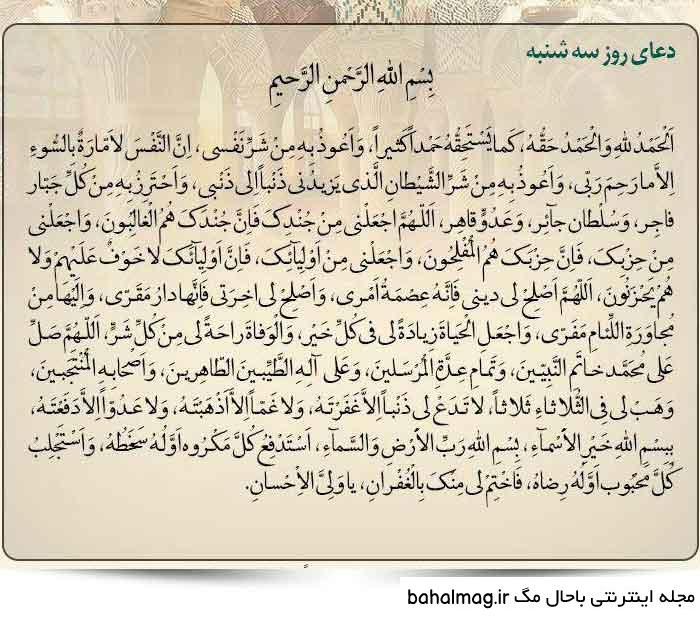 دعای روز سه شنبه
بِسْمِ اللهِ الرَّحْمنِ الرَّحیمِ
اَلْحَمْدُ للهِ وَالْحَمْدُ حَقُّهُ، کَما یَسْتَحِقُّهُ حَمْداً کَثیراً، وَاَعُوذُ بِهِ مِنْ شَرِّ نَفْسی، اِنَّ النَّفْسَ لاَمّارَةٌ بِالسُّوءِ
اِلاّ ما رَحِمَ رَبّی، وَاَعُوذُ بِهِ مِنْ شَرِّ الشَّیْطانِ الَّذی یَزیدُنی ذَنْباً اِلی ذَنْبی، وَاَحْتَرِزُ بِهِ مِنْ کُلِّ جَبّار
فاجِر، وَسُلْطان جآئِر، وَعَدُوٍّ قاهِر، اَللّهُمَّ اجْعَلْنی مِنْ جُنْدِکَ فَاِنَّ جُنْدَکَ هُمُ الْغالِبُونَ، وَاجْعَلْنی
مِنْ حِزْبِکَ، فَاِنَّ حِزْبَکَ هُمُ الْمُفْلِحُونَ، وَاجْعَلْنی مِنْ اَوْلِیآئِکَ، فَاِنَّ اَوْلِیآئَکَ لا خَوْفٌ عَلَیْهِمْ وَلا
هُمْ یَحْزَنُونَ، اَللّهُمَّ اَصْلِحْ لی دینی فَاِنَّهُ عِصْمَةُ اَمْری، وَاَصْلِحْ لی اخِرَتی فَاِنَّها دارُ مَقَرّی، وَاِلَیْها مِنْ
مُجاوَرَةِ اللِّئامِ مَفَرّی، وَاجْعَلِ الْحَیاةَ زِیادَةً لی فی کُلِّ خَیْر، وَالْوَفاةَ راحَةً لی مِنْ کُلِّ شَرٍّ، اَللّهُمَّ صَلِّ
عَلی مُحَمَّد خاتَمِ النَّبِیّینَ، وَتَمامِ عِدَّةِ الْمُرْسَلینَ، وَعَلی آلِهِ الطَّیِّبینَ الطّاهِرینَ، وَاَصْحابِهِ الْمُنْتَجَبینَ،
وَهَبْ لی فِی الثُّلاثاءِ ثَلاثاً، لا تَدَعْ لی ذَنْباً اِلاّ غَفَرْتَهُ، وَلا غَمّاً اِلاّ اَذْهَبْتَهُ، وَلا عَدُوّاً اِلاّ دَفَعْتَهُ،
بِبِسْمِ اللهِ خَیْرِ الاَْسْمآءِ، بِسْمِ اللهِ رَبِّ الاَْرْضِ وَالسَّمآءِ، اَسْتَدْفِعُ کُلَّ مَکْرُوه اَوَّلُهُ سَخَطُهُ، وَاَسْتَجْلِبُ
کُلَّ مَحْبُوب اَوَّلُهُ رِضاهُ، فَاخْتِمْ لی مِنْکَ بِالْغُفْرانِ، یا وَلِیَّ الاِْحْسانِ.
مجله اینترنتی باحال مگ bahalmag.ir